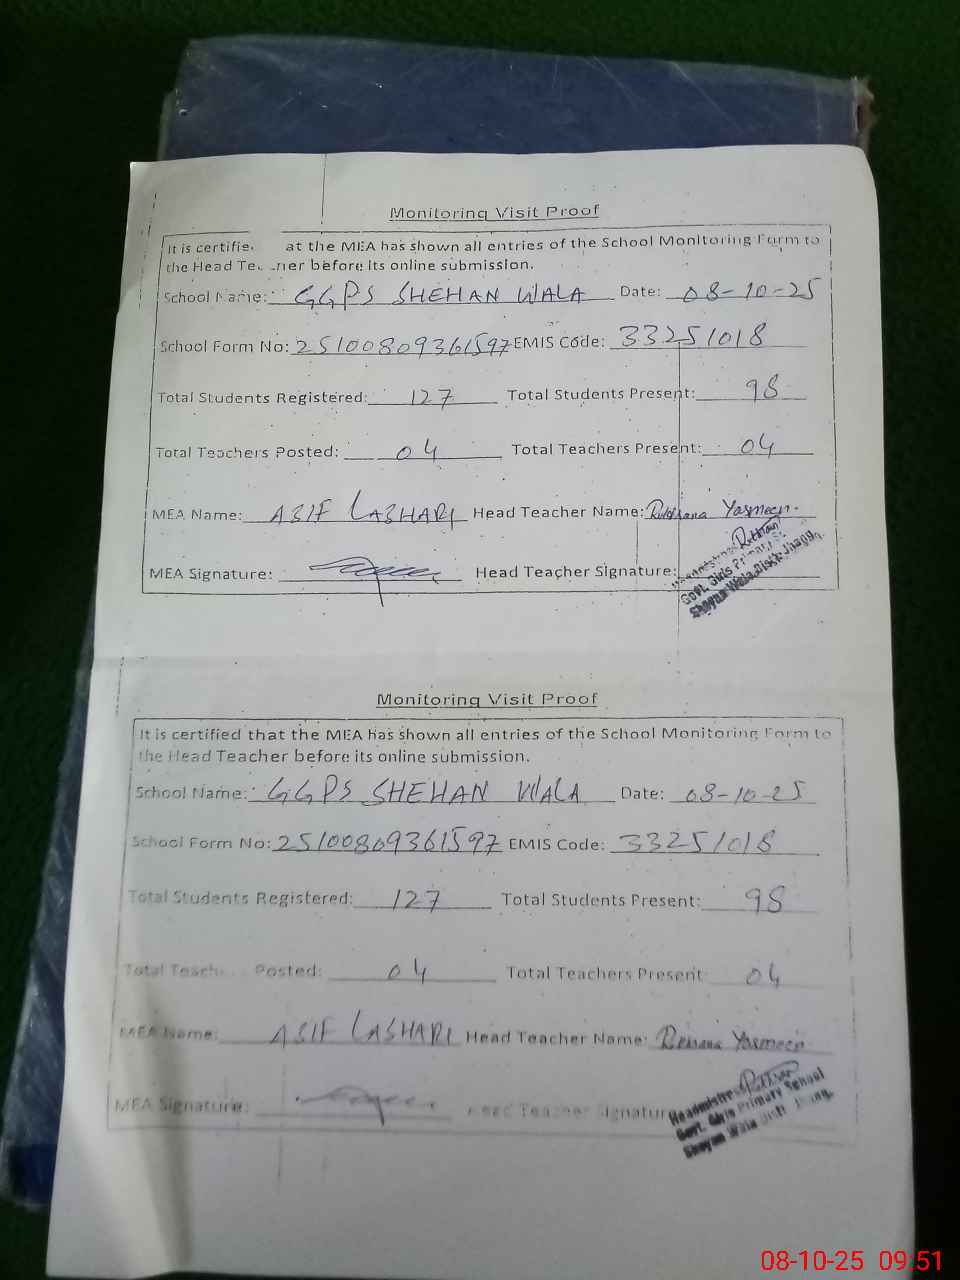 Monitoring Visit Proof
It is certifie at the MEA has shown all entries of the School Monitoring Form to
the Head Te ner before its online submission.
School Name: GGPS SHEHAN WALA Date: 08-10-25
School Form No: 25100809361597 EMIS Code: 33251018
Total Students Registered: 127 Total Students Present: 98
Total Teachers Posted: 04 Total Teachers Present: 04
MEA Name: ASIF LASHARI Head Teacher Name: Yasmeen.
MEA Signature: Head Teacher Signature:
Govt. Girls Primary
Wala Distt. Jhang.
Monitoring Visit Proof
It is certified that the MEA has shown all entries of the School Monitoring Form to
the Head Teacher before its online submission.
School Name: GGPS SHEHAN WALA Date: 08-10-25
School Form No: 25100809361597 EMIS Code: 33251018
Total Students Registered: 127 Total Students Present: 98
Total Teach Posted: 04 Total Teachers Present: 04
MEA Name: ASIF LASHARI Head Teacher Name: Yasmeen
MEA Signature: Head Teacher Signature
Headmistress
Govt. Girls Primary School
Wala Distt. Jhang.
08-10-25 09.51